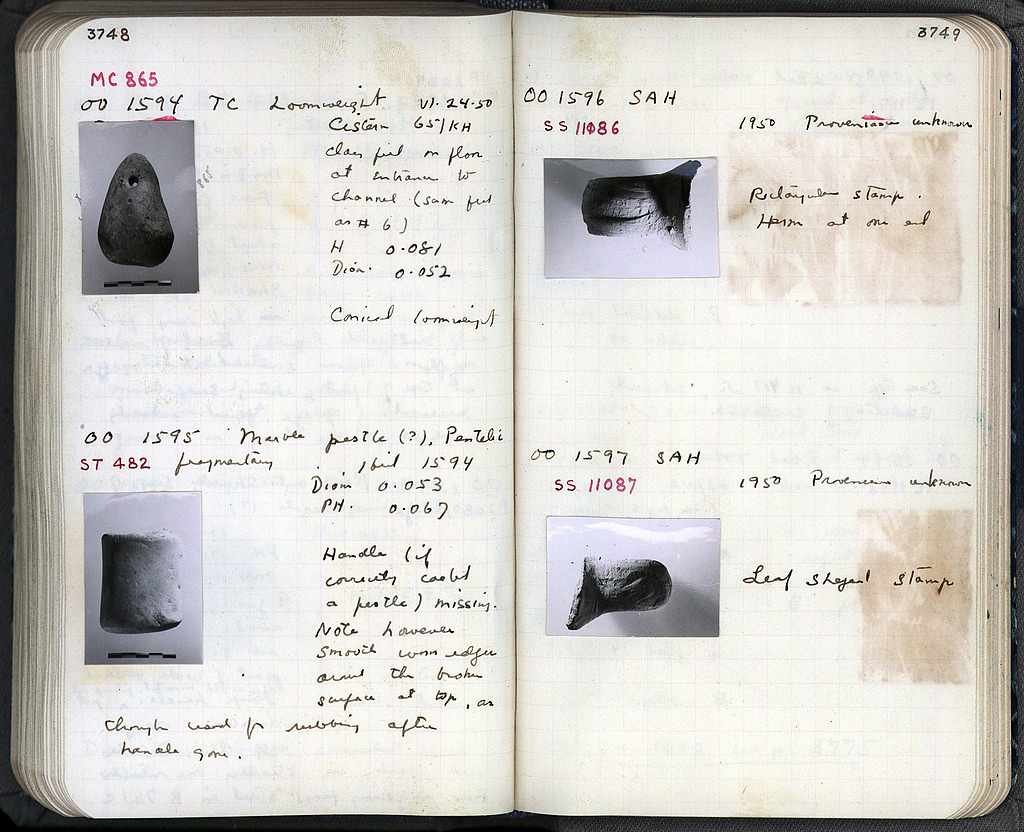 3748
MC 865
OO 1594 TC Loomweight VI.24.50
Cistern 65/KH
clay fill on floor
at entrance to
channel. (Same fill
as # 6)
H 0.081
Diam. 0.052
Conical loomweight
OO 1595 Marble pestle (?), Pentelic
ST 482 fragmentary
, fill 1594
Diam 0.053
PH. 0.067
Handle (if
correctly called
a pestle) missing.
Note however
smooth worn edges
around the broken
surface at top, as
though used for rubbing after
handle gone.
3749
OO 1596 SAH
SS 11086
1950 Provenience unknown
Rectangular stamp.
Herm at one end
OO 1597 SAH
SS 11087
1950 Provenience unknown
Leaf shaped stamp